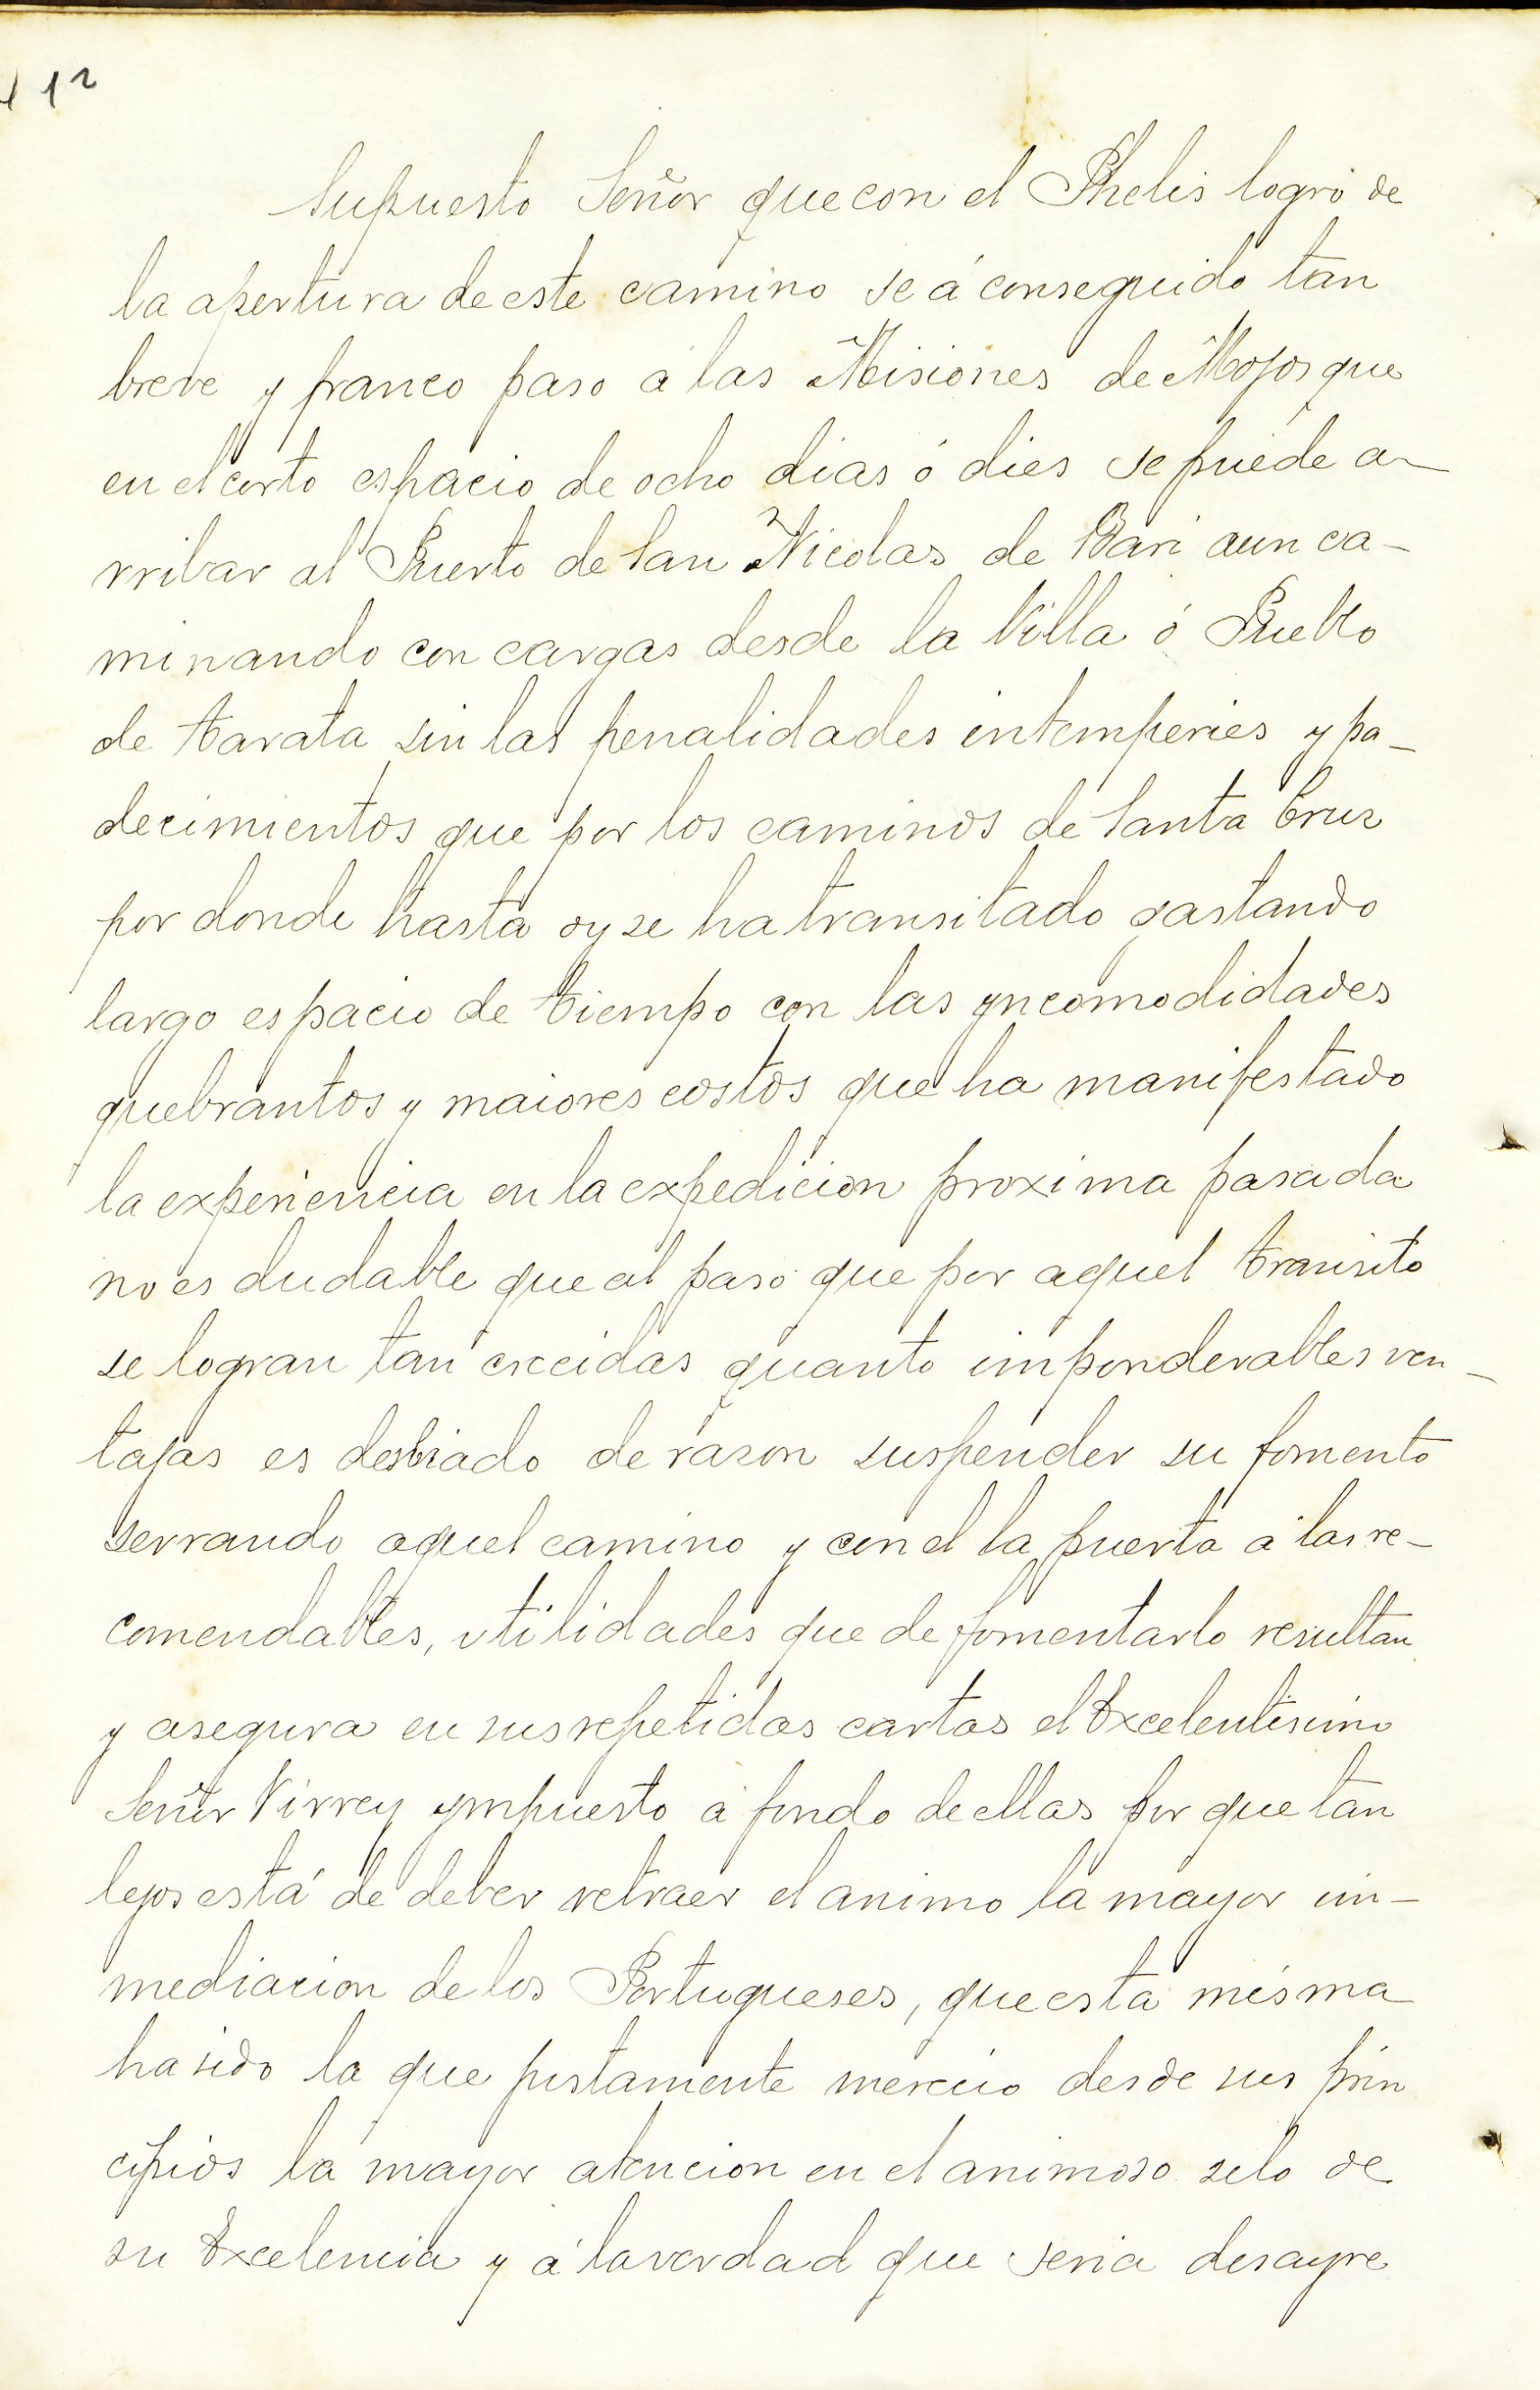 112
Supuesto Señor que con el Phelis logro de
la apertura de este camino se á conseguido tan
breve y franco paso a las Misiones de Mojos que
en el corto espacio de ocho dias ó dies se puede a-
rribar al Puerto de San Nicolas de Bari aun ca-
minando con cargas desde la Villa ó Pueblo
de tarata sin las penalidades intemperies y pa-
decimientos que por los caminos de Santa Cruz
por donde hasta oy se ha transitado gastando
largo espacio de tiempo con las yncomodidades
quebrantos y maiores costos que ha manifestado
la experiencia en la expedicion proxima pasada
no es dudable que al paso que por aquel transito
se logran tan crecidas quanto imponderables ven-
tajas es desbiado de razon suspender su fomento
serrando aquel camino y con el la puerta á las re-
comendables, utilidades que de fomentarlo resultan
y asegura en sus repetidas cartas el Excelentisimo
Señor Virrey ympuesto á fondo de ellas por que tan
lejos está de deber retraer el animo la mayor in-
mediacion de los Portugueses, que esta misma
ha sido la que justamente merecio desde sus prin
cipios la mayor atencion en el animoso selo de
su Excelencia y á la verdad que seria desayre